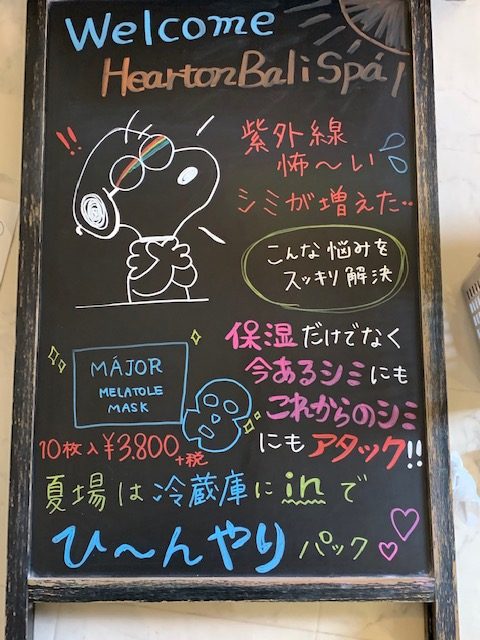 Welcome
Hearton Bali Spa
!!
紫外線
怖〜い
シミが増えた..
こんな悩みを
スッキリ解決
保湿だけでなく
今あるシミにも
これからのシミ
にもアタック!!
MÁJOR
MELATOLE
MASK
10枚入¥3.800
+税
夏場は冷蔵庫にinで
ひ〜んやりパック